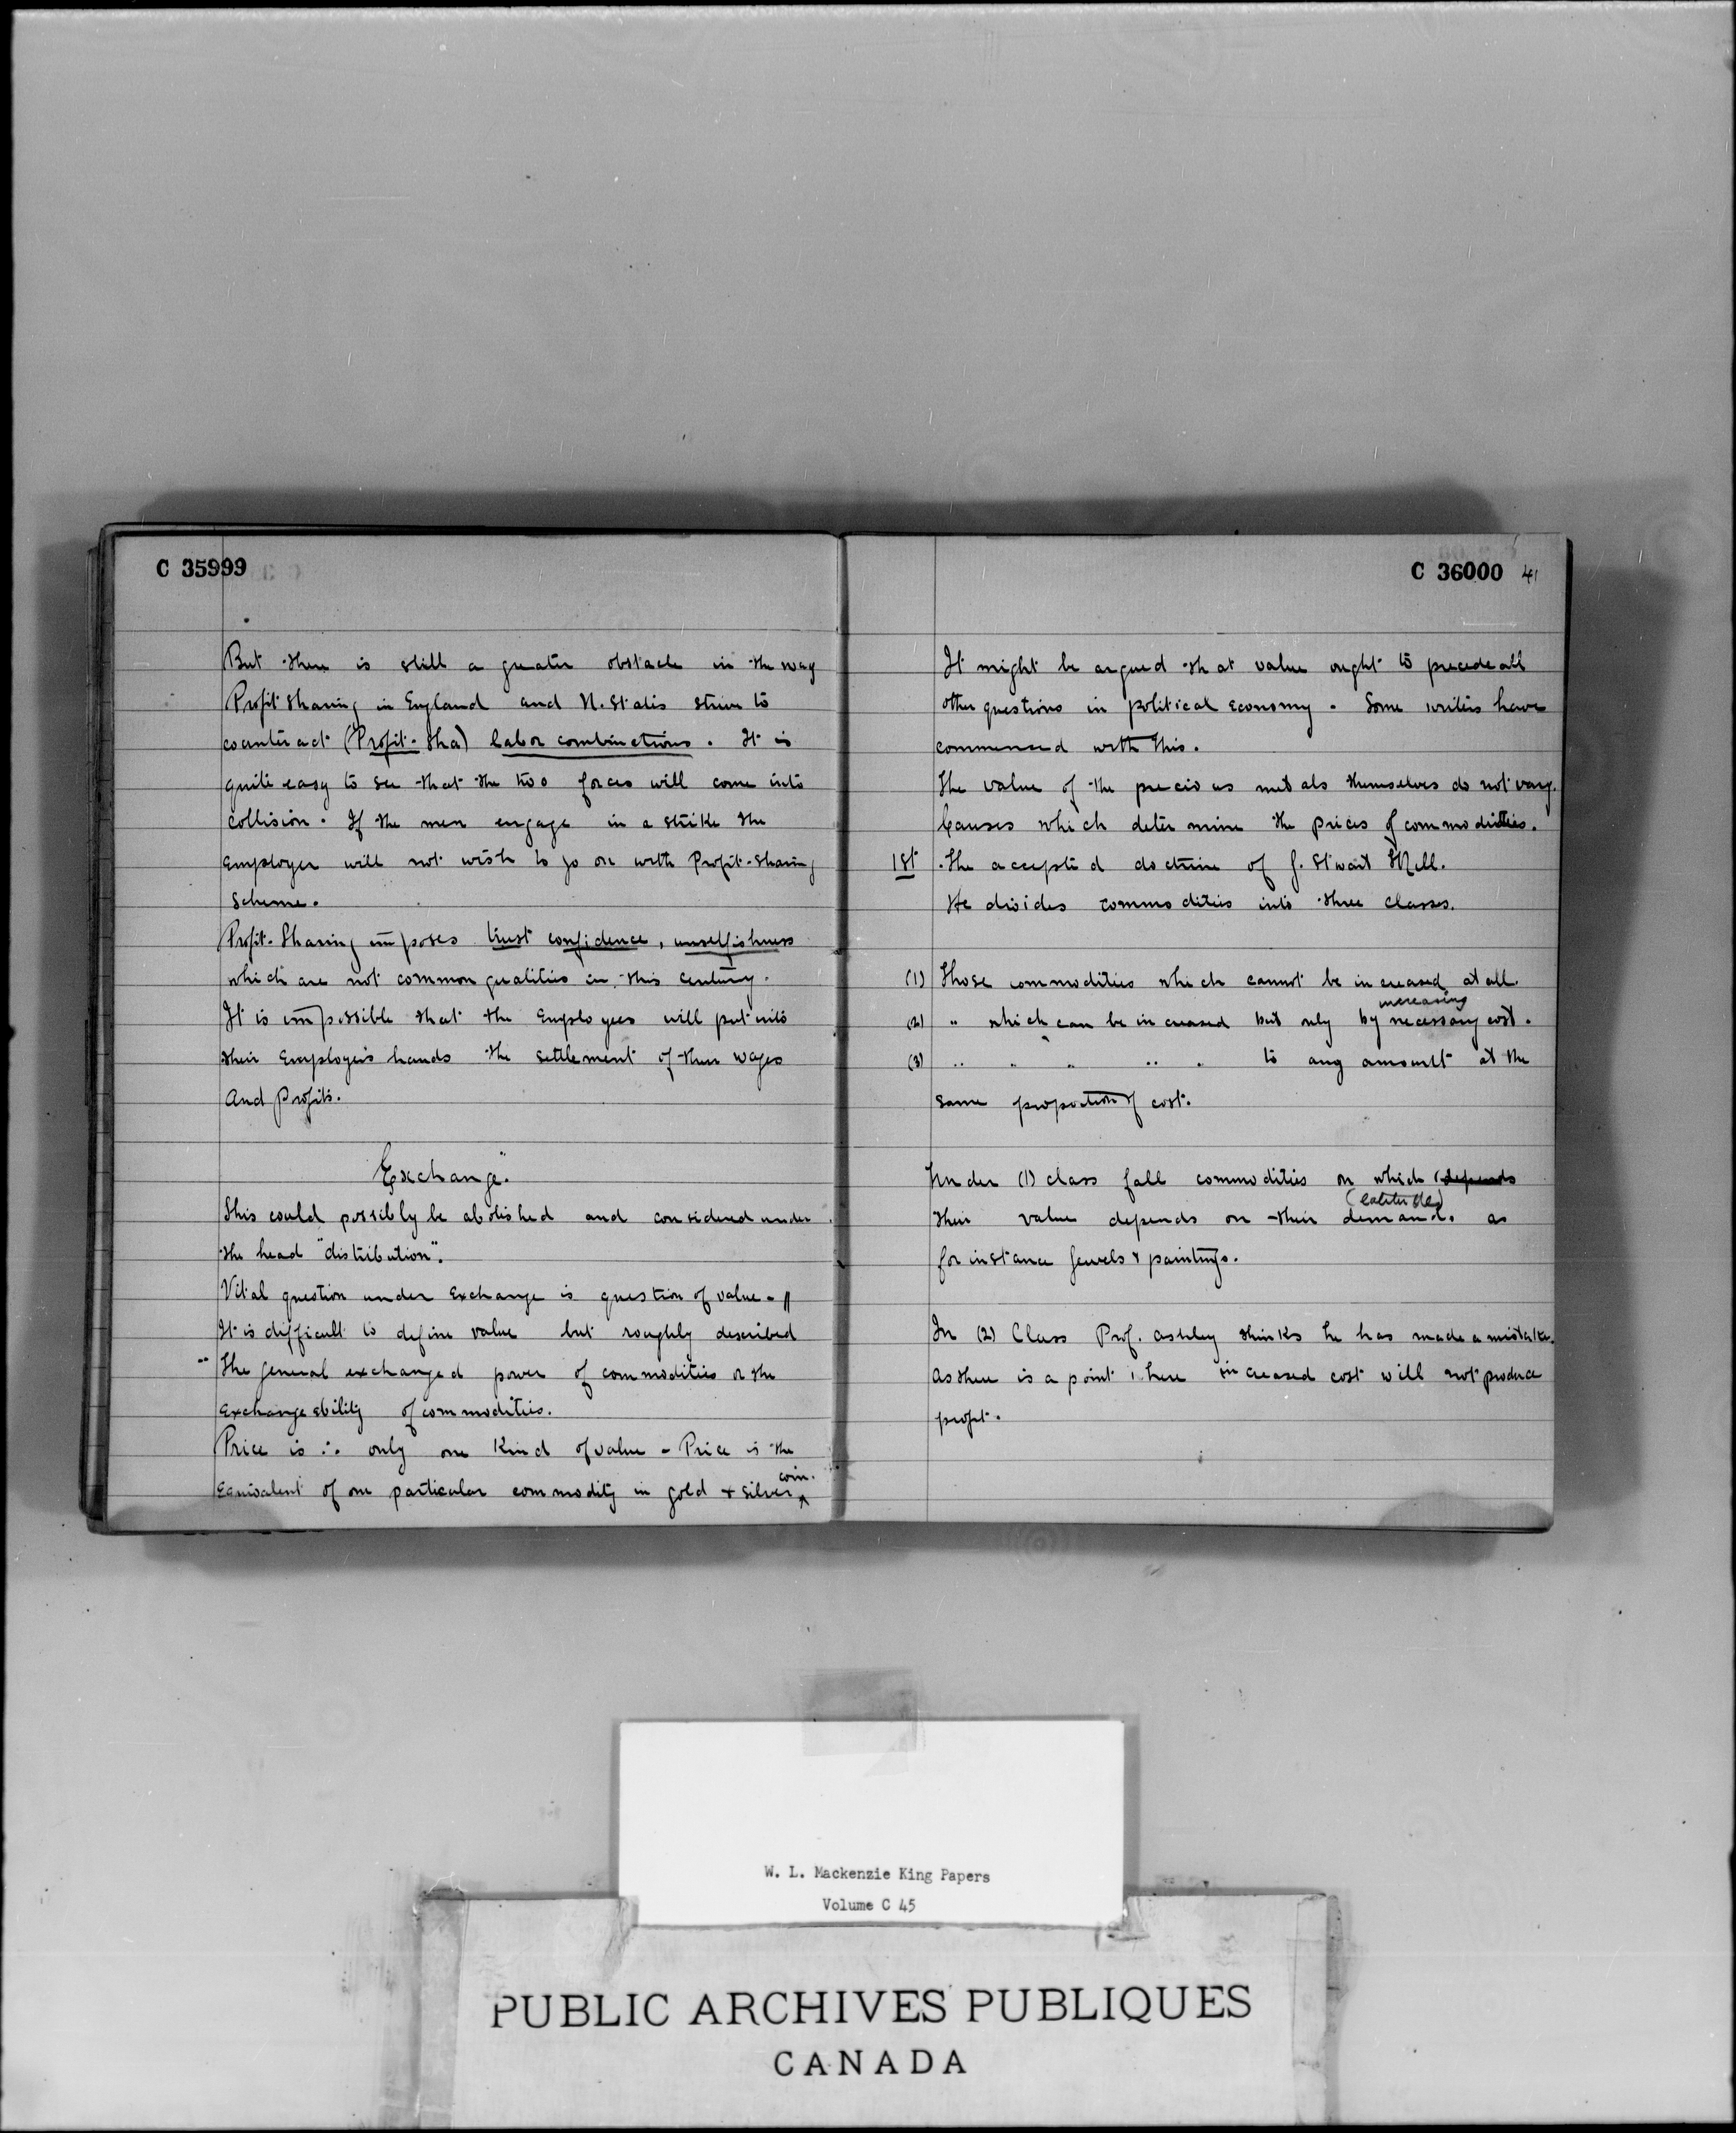 C 35999
But there is still a greater obstacle in the way
Profit Sharing in England and U. States strive to
counteract (Profit-Sha) labor combinations. It is
quite easy to see that the two forces will come into
collision. If the men engage in a strike the
employer will not wish to go on with Profit-Sharing
Scheme.
Profit-Sharing imposes trust confidence, unselfishness
which are not common qualities in this century.
It is impossible that the Employees will put into
their Employers hands the settlement of their wages
And Profits.
"Exchange."
This could possibly be abolished and considered under
the head "distribution".
Vital question under Exchange is question of value - //
It is difficult to define value but roughly described
" The general exchanged power of commodities or the
exchangeability of commodities.
Price is ∴ only one Kind of value - Price is the
Equivalent of one particular commodity in gold & silver ^ coin.
C 36000 41
It might be argued that value ought to precede all
other questions in political economy. Some writers have
commenced with this.
The value of the precious metals themselves do not vary.
Causes which determine the prices of commodities.
1st. The accepted doctrine of J. Stwart Mill.
He divides commodities into three classes.
(1) Those commodities which cannot be increased at all.
increasing
(2) " which can be increased but only by necessary cost.
(3) " " " " " to any amount at the
same proportion of cost.
Under (1) class fall commodities on which (depends
their value depends on their demand. as
for instance Jewels & paintings.
In (2) Class Prof. Ashley thinks he has made a mistake.
As there is a point where increased cost will not produce
profit.
W. L. Mackenzie King Papers
Volume C 45
PUBLIC ARCHIVES PUBLIQUES
CANADA